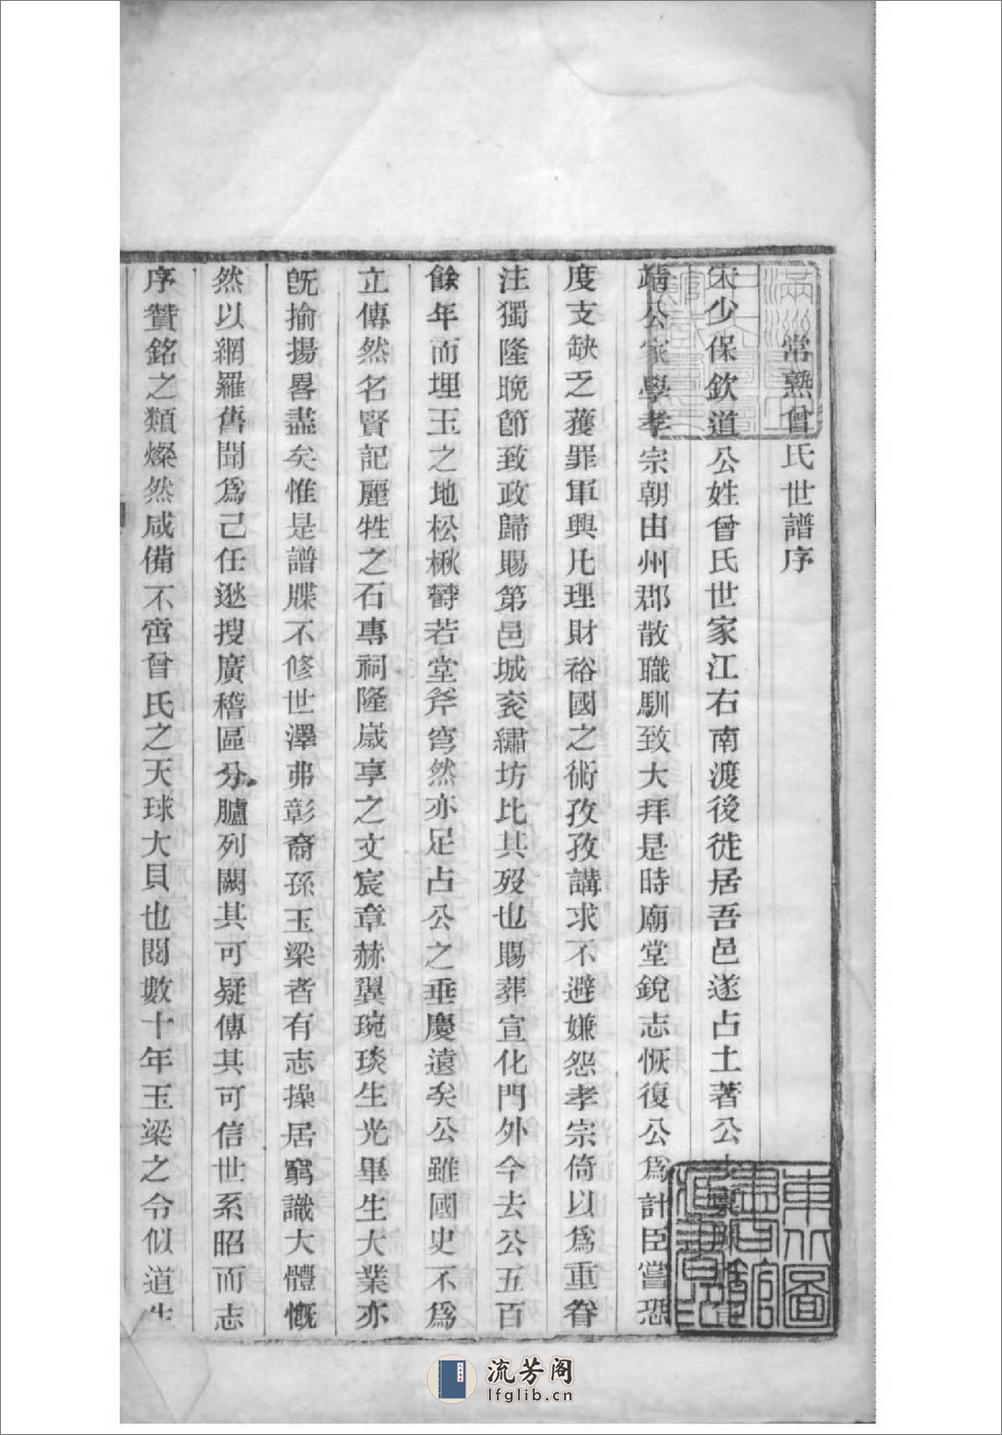 常熟曾氏世譜序
宋少保欽道公姓曾氏世家江右南渡後徙居吾邑遂占土著公
靖公家學孝宗朝由州郡散職馴致大拜是時廟堂銳志恢復公爲計臣嘗恐
度支缺乏蒦罪軍興凡理財裕國之術孜孜講求不避嫌怨孝宗倚以爲重眷
注獨隆晚節致政歸賜第邑城衮繡坊比其歿也賜葬宣化門外今去公五百
餘年而埋玉之地松楸欝若堂斧穹然亦足占公之垂慶遠矣公雖國史不爲
立傳然名賢記麗牲之石專祠隆歲享之文宸章赫翼琬琰生光畢生大業亦
旣揄揚畧盡矣惟是譜牒不修世澤弗彰裔孫玉梁者有志操居窮識大體慨
然以網羅舊聞爲己任逖搜廣稽區分臚列闕其可疑傳其可信世系昭而志
序贊銘之類燦然咸備不啻曾氏之天球大貝也閱數十年玉梁之令似道生
東北圖書館
流芳阁
lfglib.cn